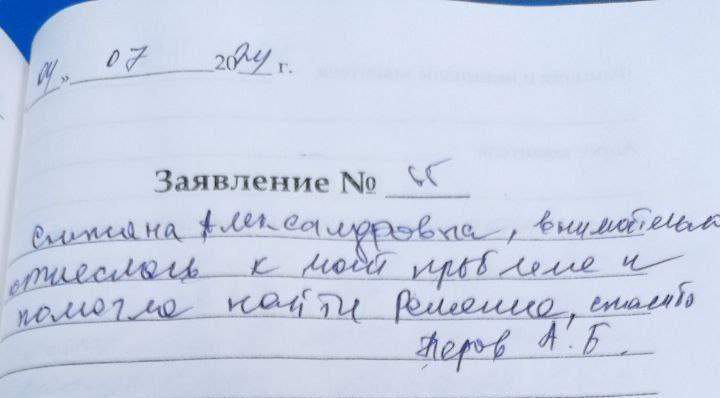 04 » 07 2024 г.
Заявление № 55
Светлана Александровна, внимательно
отнеслась к моей проблеме и
помогла найти решение, спасибо
Перов А.Б.